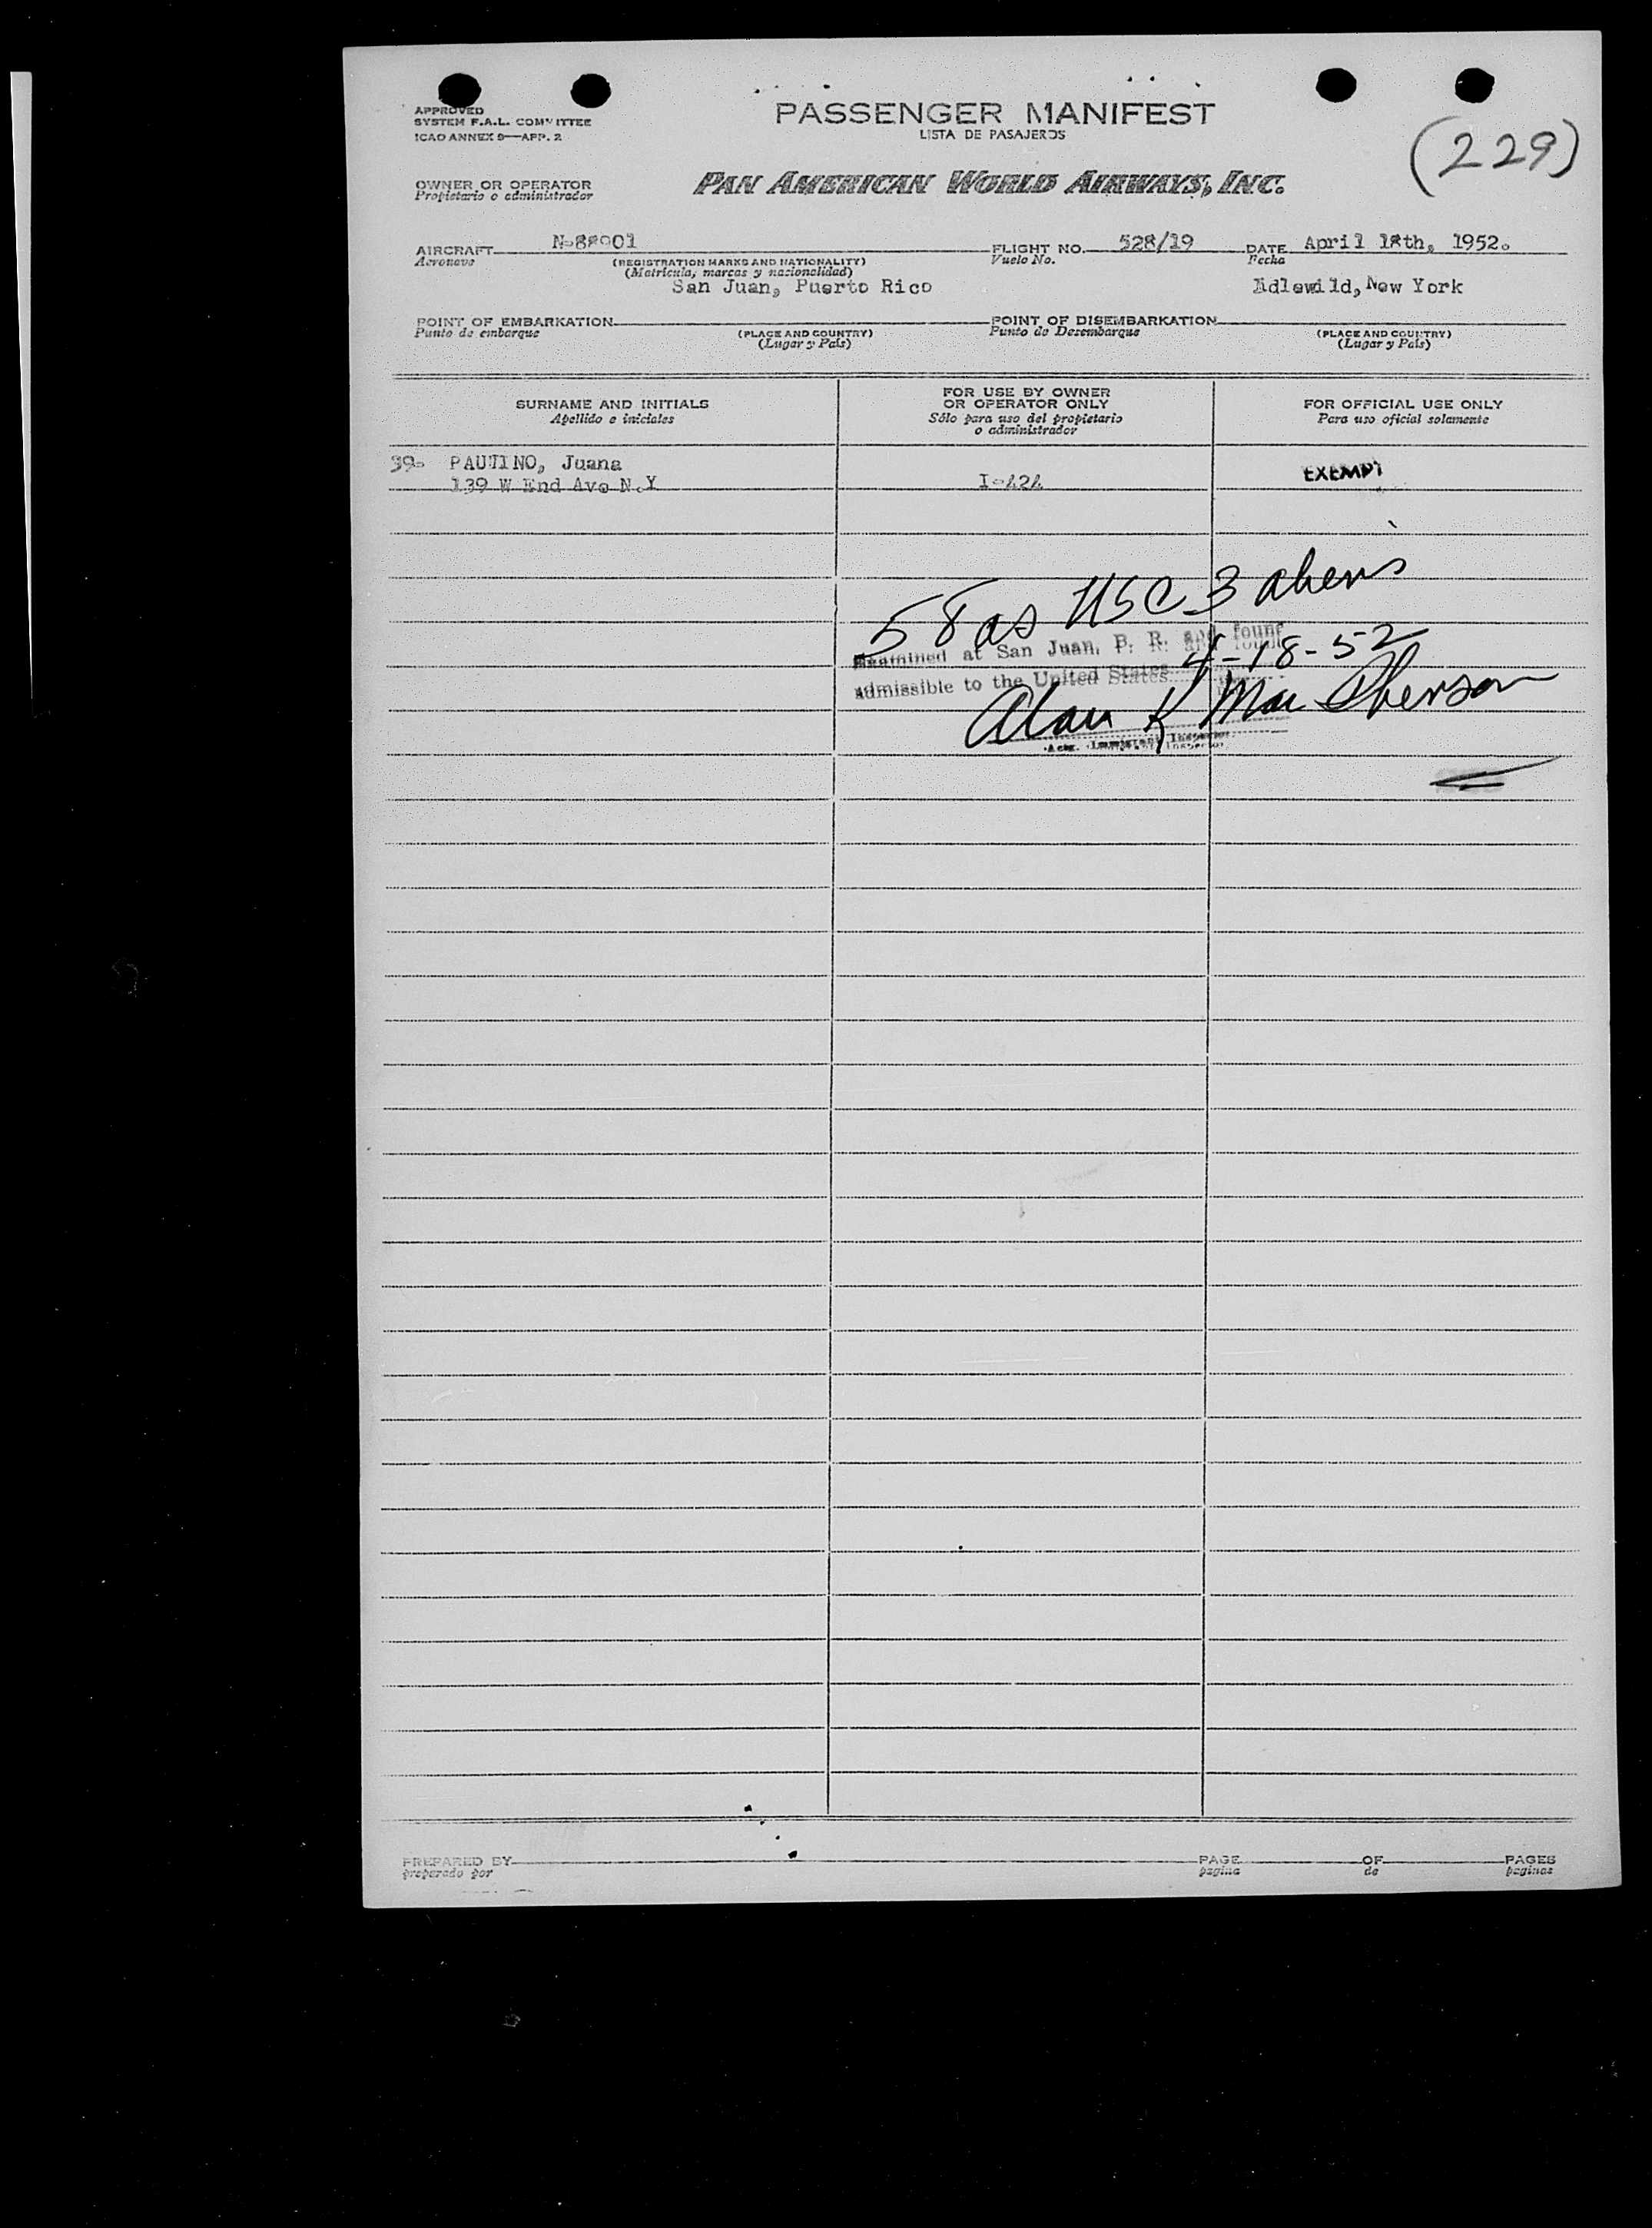 APPROVED
SYSTEM F.A.L. COMMITTEE
ICAO ANNEX 9—APP. 2
PASSENGER MANIFEST
LISTA DE PASAJEROS
(229)
OWNER OR OPERATOR
Propietario o administrador
PAN AMERICAN WORLD AIRWAYS, INC.
AIRCRAFT N-88901 FLIGHT NO. 528/19 DATE April 18th, 1952.
Aeronave (REGISTRATION MARKS AND NATIONALITY) Vuelo No. Fecha
(Matricula, marcas y nacionalidad)
San Juan, Puerto Rico Idlewild, New York
POINT OF EMBARKATION POINT OF DISEMBARKATION
Punto de embarque (PLACE AND COUNTRY) Punto de Desembarque (PLACE AND COUNTRY)
(Lugar y País) (Lugar y País)
SURNAME AND INITIALS
Apellido e iniciales
FOR USE BY OWNER
OR OPERATOR ONLY
Sólo para uso del propietario
o administrador
FOR OFFICIAL USE ONLY
Para uso oficial solamente
39- PAUTINO, Juana
139 W End Ave N.Y I-424 EXEMPT
58 as USC 3 aliens
Examined at San Juan, P. R. and found
4-18-52
admissible to the United States
Alan K MacPherson
Immigrant Inspector
PREPARED BY PAGE OF PAGES
preparado por página de páginas